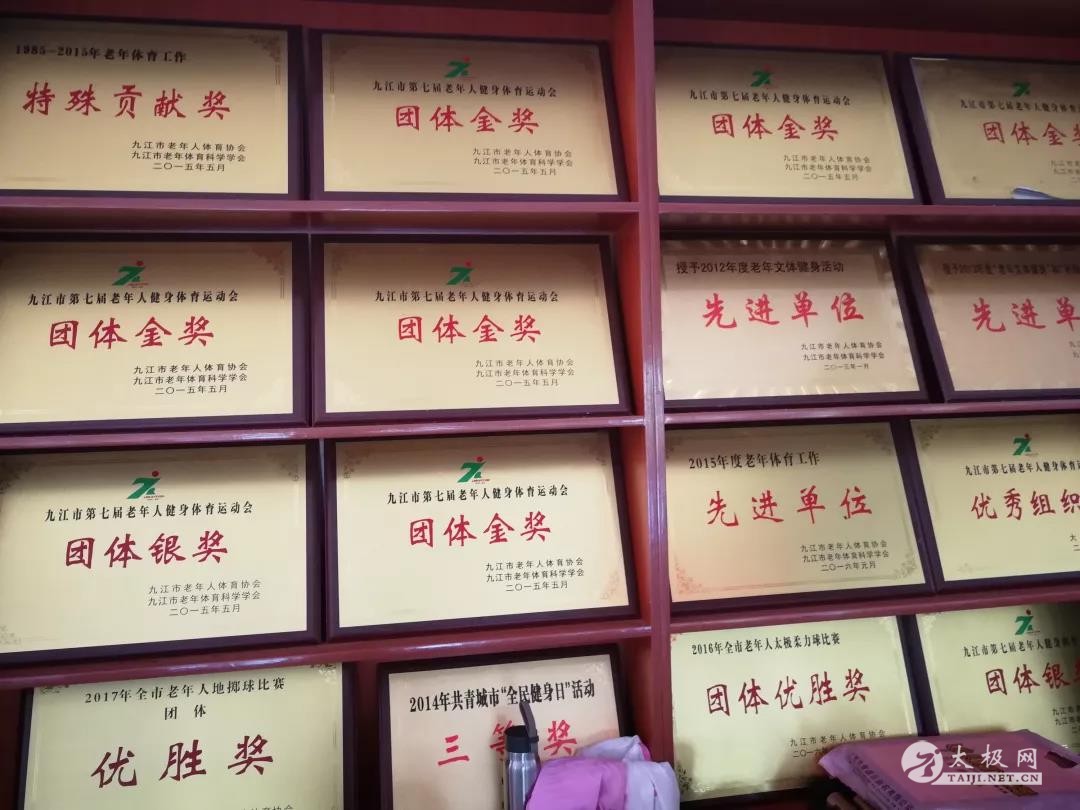 1985-2015年老年体育工作
特殊贡献奖
九江市老年人体育协会
九江市老年体育科学学会
二〇一五年五月
九江市第七届老年人健身体育运动会
团体金奖
九江市老年人体育协会
九江市老年体育科学学会
二〇一五年五月
九江市第七届老年人健身体育运动会
团体金奖
九江市老年人体育协会
九江市老年体育科学学会
二〇一五年五月
九江市第七届老年人健身体育运动会
团体金奖
九江市老年人体育协会
九江市老年体育科学学会
二〇一五年五月
九江市第七届老年人健身体育运动会
团体金奖
九江市老年人体育协会
九江市老年体育科学学会
二〇一五年五月
九江市第七届老年人健身体育运动会
团体金奖
九江市老年人体育协会
九江市老年体育科学学会
二〇一五年五月
授予2012年度老年文体健身活动
先进单位
九江市老年人体育协会
九江市老年体育科学学会
二〇一三年一月
先进单
九江市第七届老年人健身体育运动会
团体银奖
九江市老年人体育协会
九江市老年体育科学学会
二〇一五年五月
九江市第七届老年人健身体育运动会
团体金奖
九江市老年人体育协会
九江市老年体育科学学会
二〇一五年五月
2015年度老年体育工作
先进单位
九江市老年人体育协会
九江市老年体育科学学会
二〇一六年元月
九江市第七届老年人健身体育运动会
优秀组织
2017年全市老年人地掷球比赛
团体
优胜奖
2014年共青城市“全民健身日”活动
三等奖
2016年全市老年人太极柔力球比赛
团体优胜奖
九江市老年人体育协会
九江市老年体育科学学会
九江市第七届老年人健身体
团体银
太极网
TAIJI.NET.CN